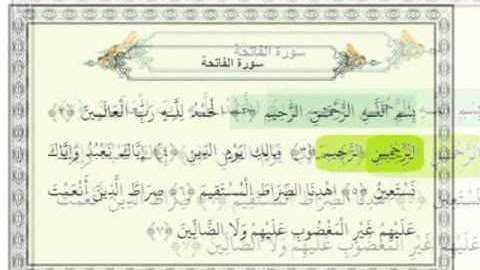 سورة الفاتحة
سورة الفاتحة
بِسْمِ اللَّهِ الرَّحْمَنِ الرَّحِيمِ ﴿١﴾ الْحَمْدُ لِلَّهِ رَبِّ الْعَالَمِينَ ﴿٢﴾
الرَّحْمَنِ الرَّحِيمِ ﴿٣﴾ مَالِكِ يَوْمِ الدِّينِ ﴿٤﴾ إِيَّاكَ نَعْبُدُ وَإِيَّاكَ
نَسْتَعِينُ ﴿٥﴾ اهْدِنَا الصِّرَاطَ الْمُسْتَقِيمَ ﴿٦﴾ صِرَاطَ الَّذِينَ أَنْعَمْتَ
عَلَيْهِمْ غَيْرِ الْمَغْضُوبِ عَلَيْهِمْ وَلَا الضَّالِّينَ ﴿٧﴾
عَلَيْهِمْ غَيْرِ الْمَغْضُوبِ عَلَيْهِمْ وَلَا الضَّالِّينَ ﴿٧﴾